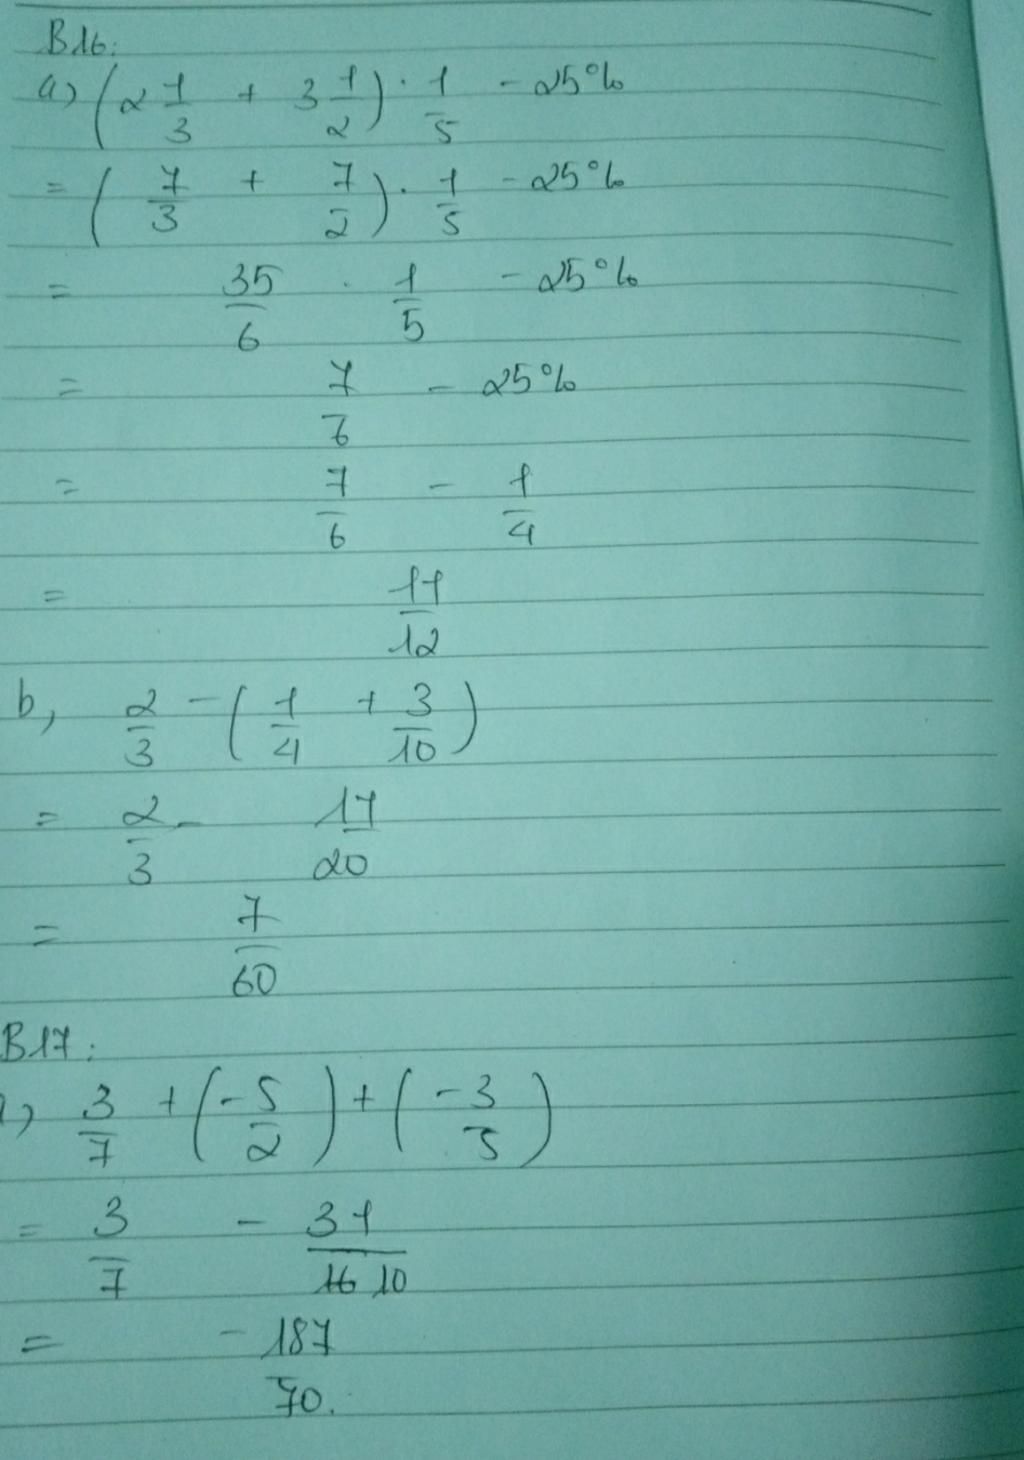 B16:
a) (2 1/3 + 3 1/2) . 1/5 - 25%
= (7/3 + 7/2) . 1/5 - 25%
= 35/6 . 1/5 - 25%
= 7/6 - 25%
= 7/6 - 1/4
= 11/12
b, 2/3 - (1/4 + 3/10)
= 2/3 - 17/20
= 7/60
B17:
) 3/7 + (-5/2) + (-3/5)
= 3/7 - 31/10
= -187/70.